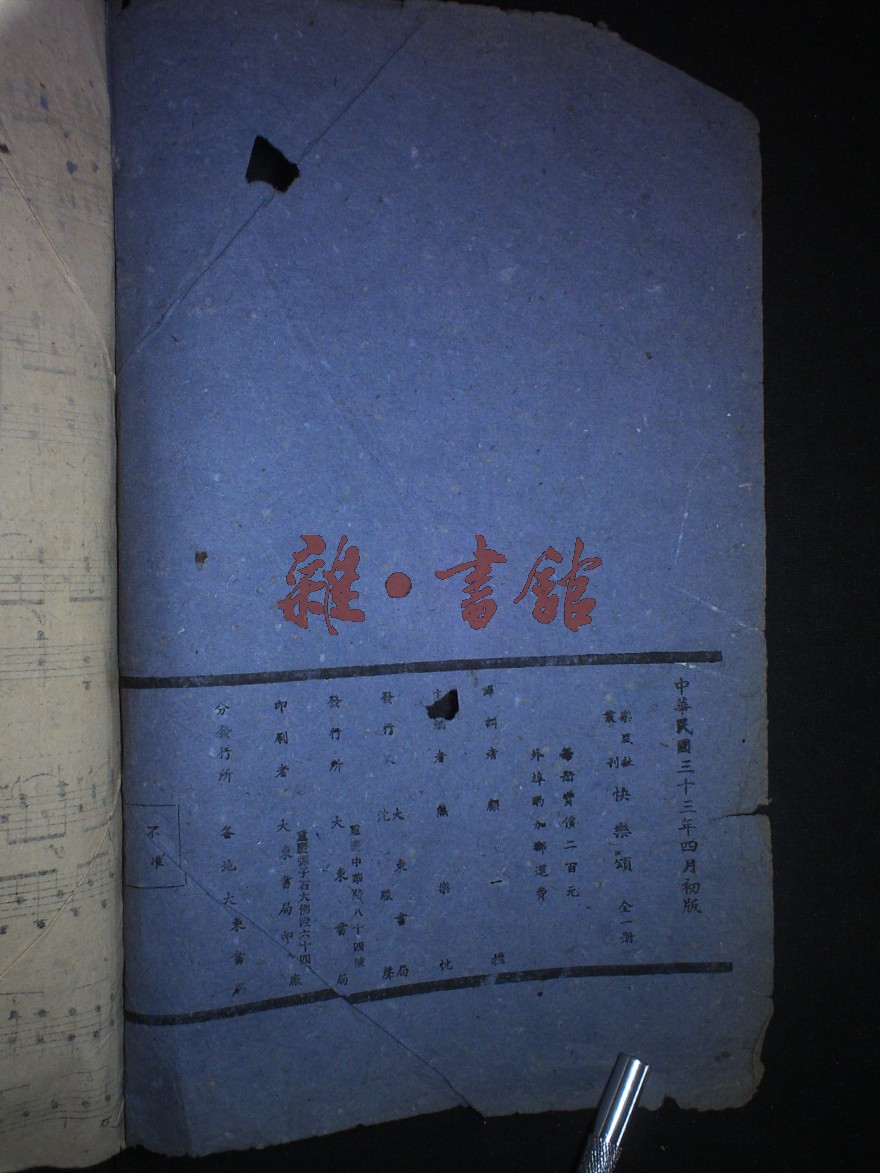 中華民國三十三年四月初版
樂風社
叢刊
快樂頌 全一冊
每册實價二百元
外埠酌加郵運費
譯詞者 顧一樵
者 熊樂忱
發行人 大東書局
沈駿聲
發行所 大東書局
八十四號
印刷者 大東書局印廠
重慶彈子石大佛段六十四
分發行所 各地大東書局
不准
雜·書館